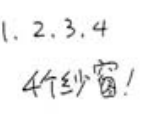 1. 2. 3. 4
4个纱窗!